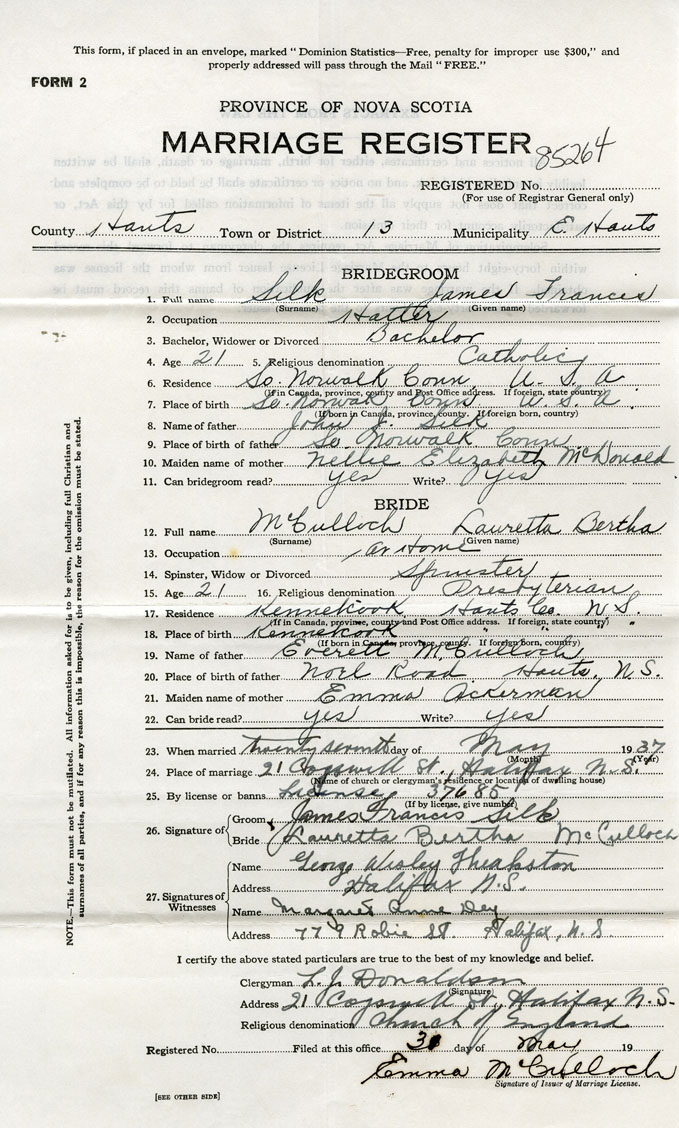 This form, if placed in an envelope, marked "Dominion Statistics—Free, penalty for improper use $300," and
properly addressed will pass through the Mail "FREE."
FORM 2
PROVINCE OF NOVA SCOTIA
MARRIAGE REGISTER
85264
REGISTERED No.
(For use of Registrar General only)
County Hants Town or District 13 Municipality E. Hants
BRIDEGROOM
1. Full name Silk James Frances
(Surname) (Given name)
2. Occupation Hatter
3. Bachelor, Widower or Divorced Bachelor
4. Age 21 5. Religious denomination Catholic
6. Residence So. Norwalk Conn. U. S. A
(If in Canada, province, county and Post Office address. If foreign, state country)
7. Place of birth So. Norwalk Conn. U. S. A.
(If born in Canada, province, county. If foreign born, country)
8. Name of father John J. Silk
9. Place of birth of father So Norwalk Conn.
10. Maiden name of mother Nellie Elizabeth McDonald
11. Can bridegroom read? yes Write? yes
BRIDE
12. Full name McCulloch Lauretta Bertha
(Surname) (Given name)
13. Occupation At Home
14. Spinster, Widow or Divorced Spinster
15. Age 21 16. Religious denomination Presbyterian
17. Residence Kennetcook Hants Co. N S.
(If in Canada, province, county and Post Office address. If foreign, state country)
18. Place of birth Kennetcook " " " "
(If born in Canada, province, county. If foreign born, country)
19. Name of father Everett McCulloch
20. Place of birth of father Noel Road Hants, N.S.
21. Maiden name of mother Emma Ackerman
22. Can bride read? yes Write? yes
23. When married twenty seventh day of May 1937
(Month) (Year)
24. Place of marriage 21 Cogswell St., Halifax N.S.
(Name of church or clergyman's residence or location of dwelling house)
25. By license or banns License 37685
(If by license, give number)
26. Signature of Groom James Francis Silk
Bride Lauretta Bertha McCulloch
27. Signatures of Witnesses
Name George Wesley Theakston
Address Halifax N.S.
Name Margaret Anne Dey
Address 779 Robie St. Halifax, N. S
I certify the above stated particulars are true to the best of my knowledge and belief.
Clergyman L. J. Donaldson
(Signature)
Address 21 Cogswell St., Halifax N.S.
Religious denomination Church of England
Registered No. Filed at this office 31 day of May 19
Emma McCulloch
Signature of Issuer of Marriage License.
[SEE OTHER SIDE]
NOTE.—This form must not be mutilated. All information asked for is to be given, including full Christian and
surnames of all parties, and if for any reason this is impossible, the reason for the omission must be stated.